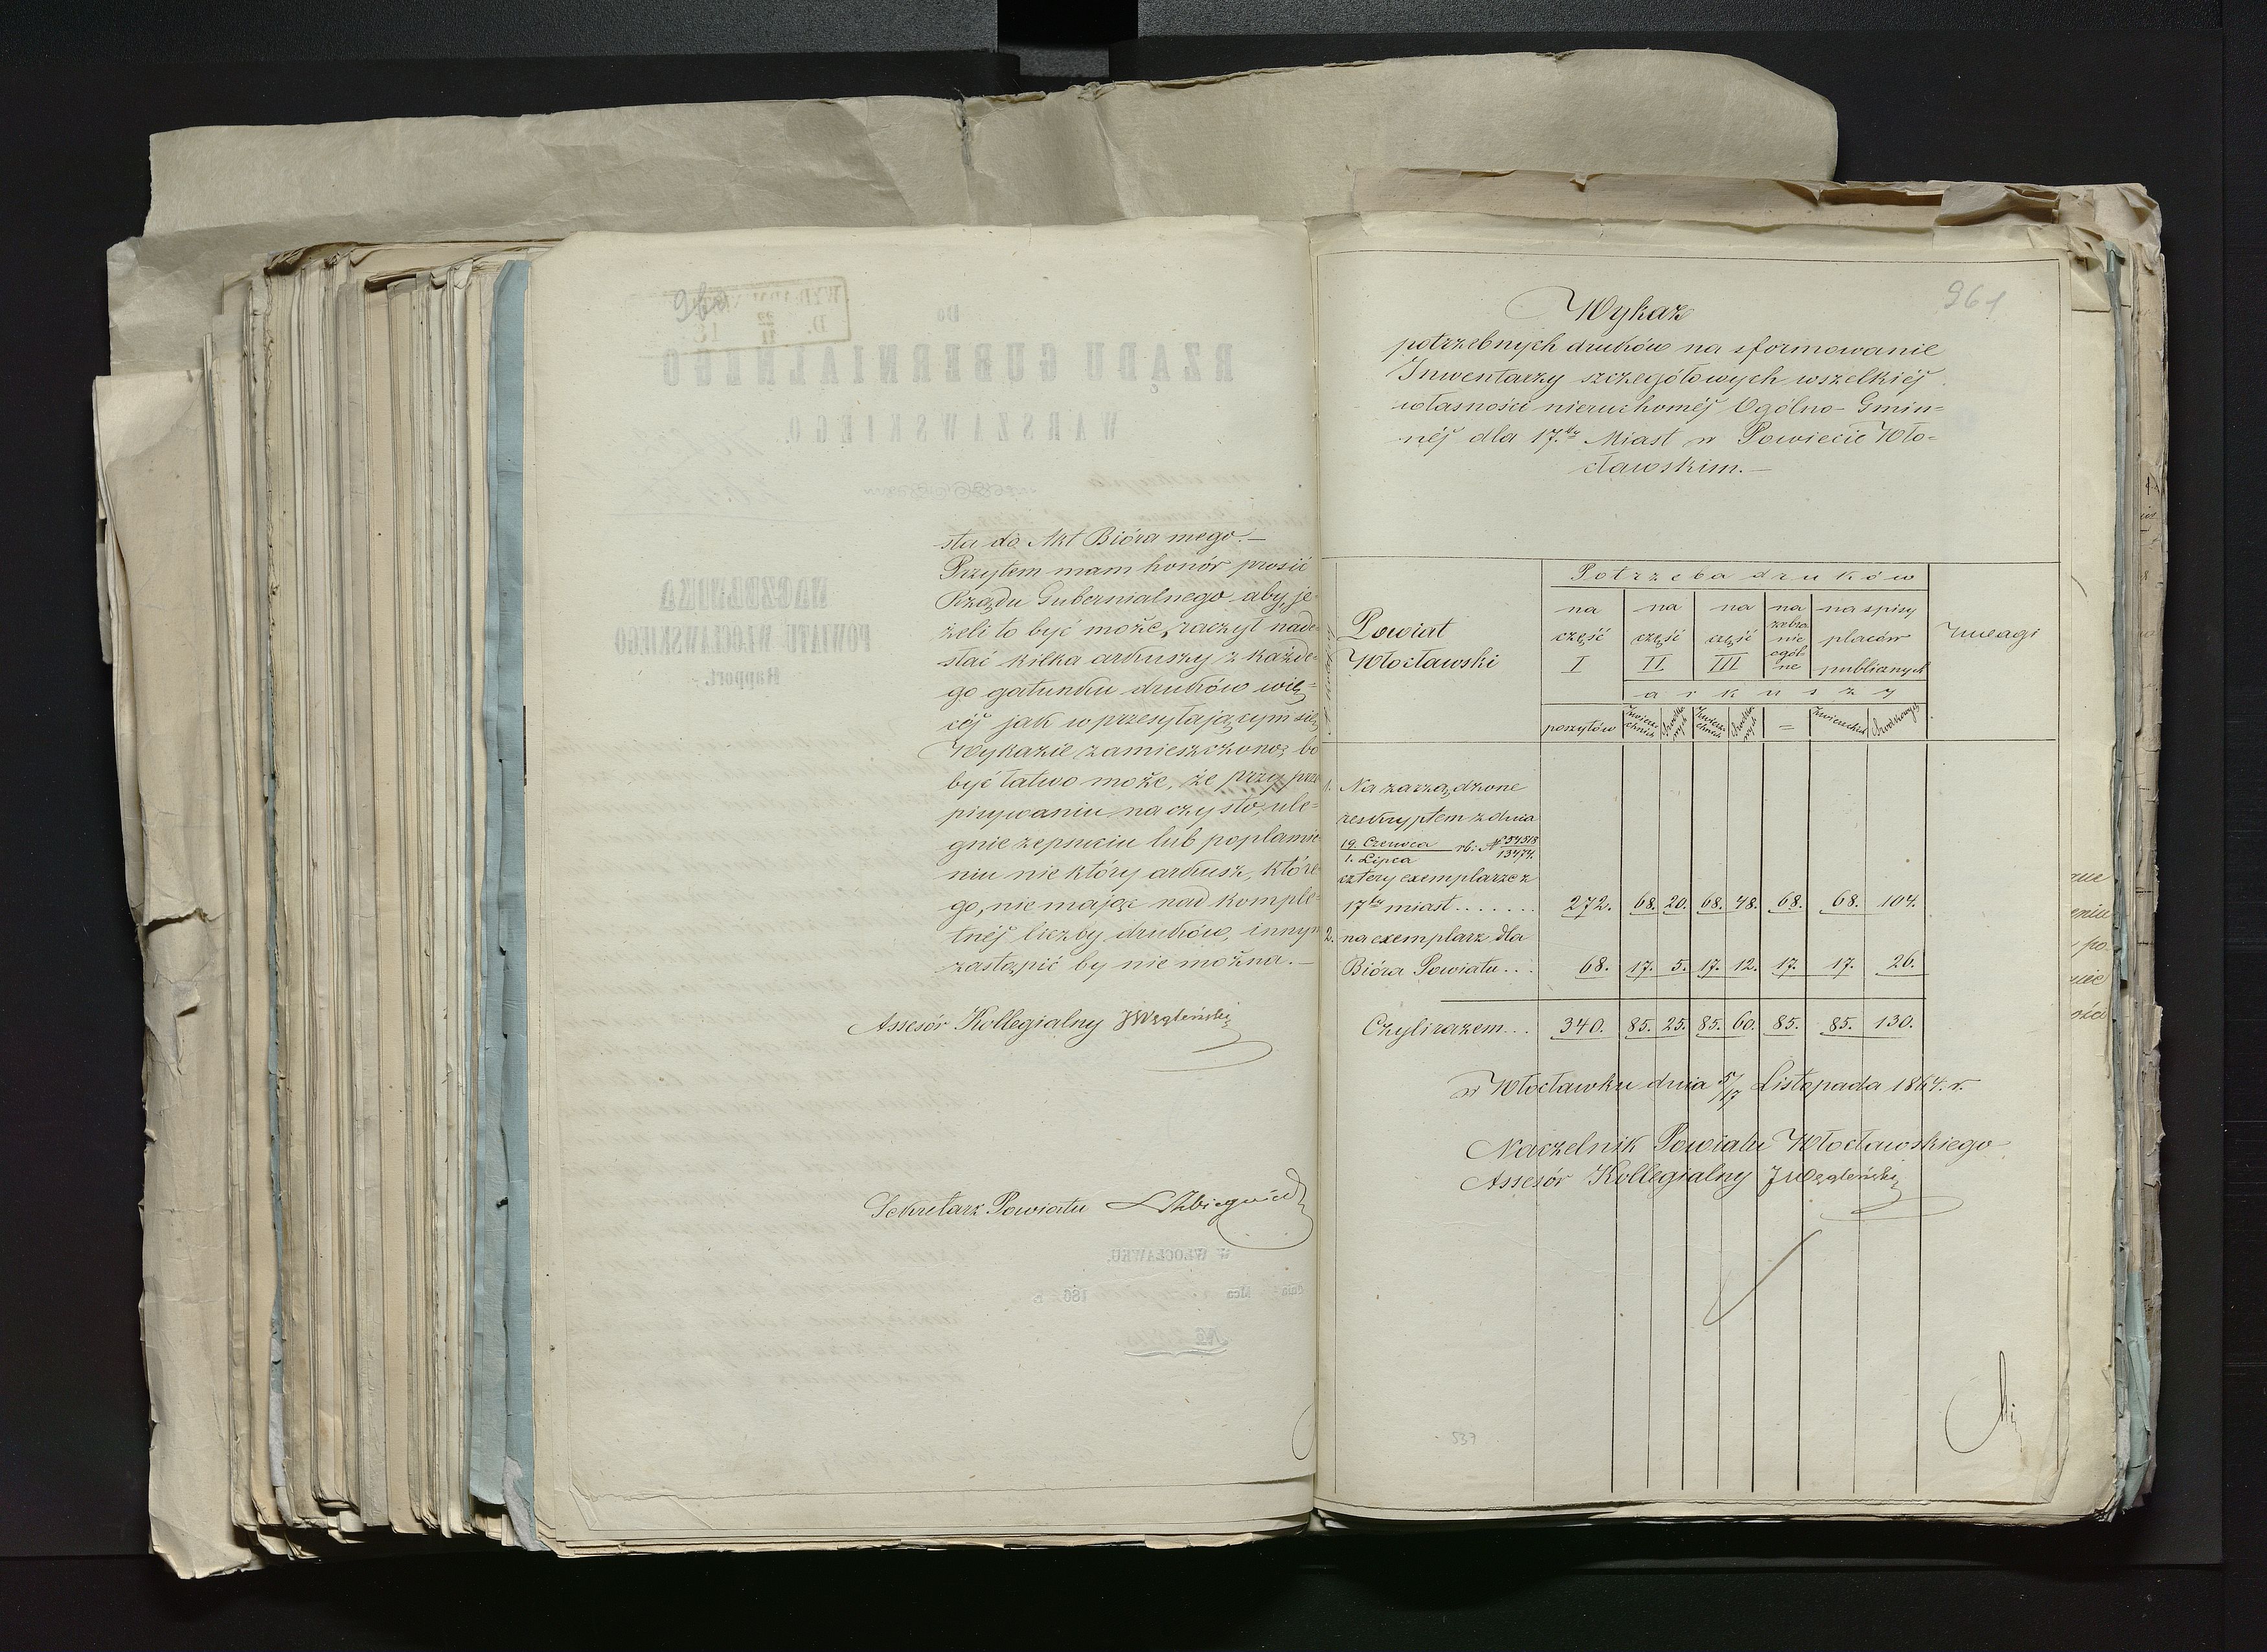 sta do Akt Bióra mego.—
Przytem mam honór prosić
Rządu Gubernialnego aby, je-
żeli to być może, raczył nade-
słać kilka arkuszy z każde-
go gatunku druków wię-
céj jak w przesyłającym się
Wykazie zamieszczono, bo
być łatwo może, że przy prze
pisywaniu na czysto, ule-
gnie zepsuciu lub poplamie
niu niektóry arkusz, które
go, nie mając nad komple-
tnéj liczby druków, innym
zastąpić by nie można.—
Assesór Kollegialny JWęgleński
Sekretarz Powiatu
961
Wykaz
potrzebnych druków na sformowanie
Inwentarzy szczegółowych wszelkiéj
własności nieruchoméj Ogólno-Gmin=
néj dla 17.tu Miast w Powiecie Wło=
cławskim.—
Powiat
Włocławski
Potrzeba druków
na część I
na część II
na część III
na zebranie ogólne
na spisy placów publicznych
Uwagi
arkuszy
poszytów
Zwierzchnich
Środkowych
Zwierzchnich
Środkowych
=
Zwierzchnich
Środkowych
1. Na zarządzone
reskryptem z dnia
19. Czerwca / 1. Lipca rb: № 54318/13474.
cztery exemplarze z
17tu miast....... 272. 68. 20. 68. 48. 68. 68. 104.
2. na exemplarz dla
Bióra Powiatu... 68. 17. 5. 17. 12. 17. 17. 26.
Czyli razem... 340. 85. 25. 85. 60. 85. 85. 130.
w Włocławku dnia 5/17 Listopada 1864. r.
Naczelnik Powiatu Włocławskiego
Assesór Kollegialny JWęgleński
537